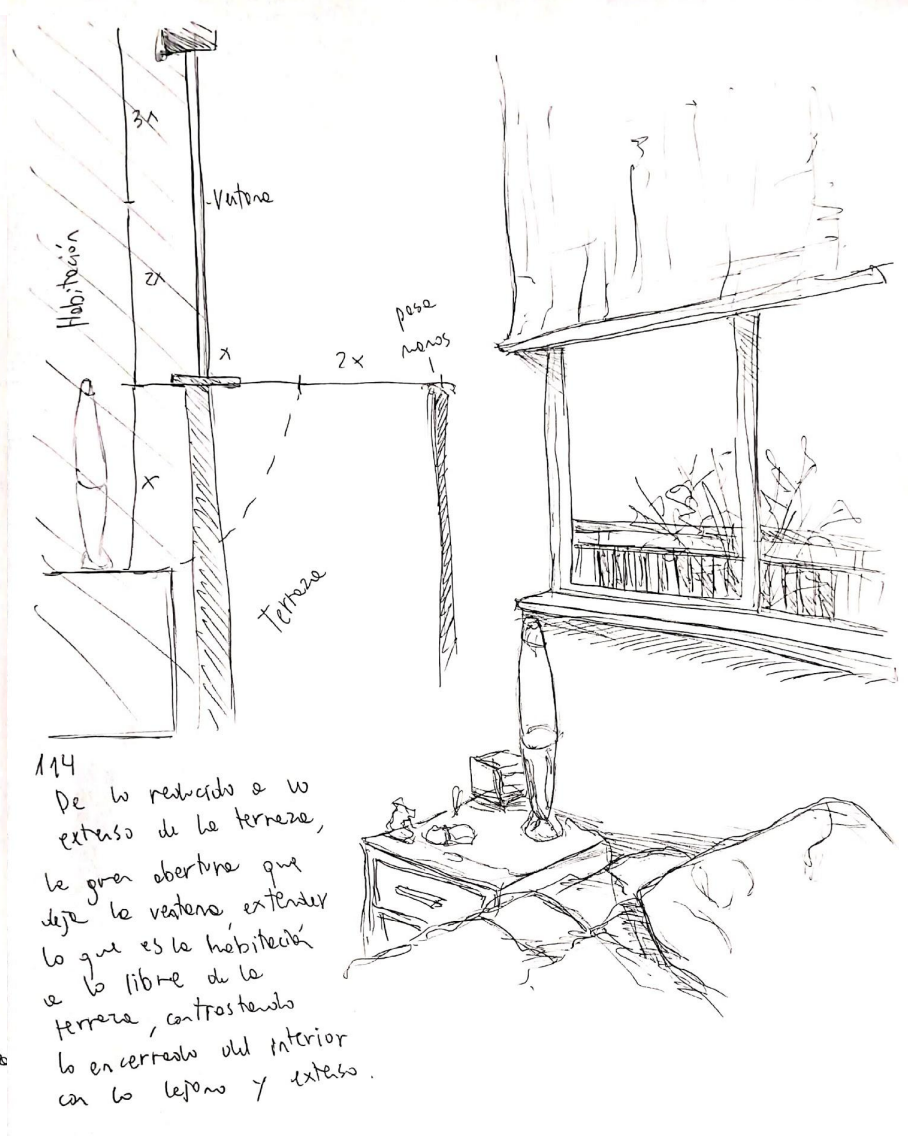 3x
Ventana
Habitación
2x
x
2x
pasa
manos
x
Terraza
114
De lo reducido a lo
extenso de la terraza,
la gran abertura que
deja la ventana extender
lo que es la habitación
a lo libre de la
terraza, contrastando
lo encerrado del interior
con lo lejano y extenso.